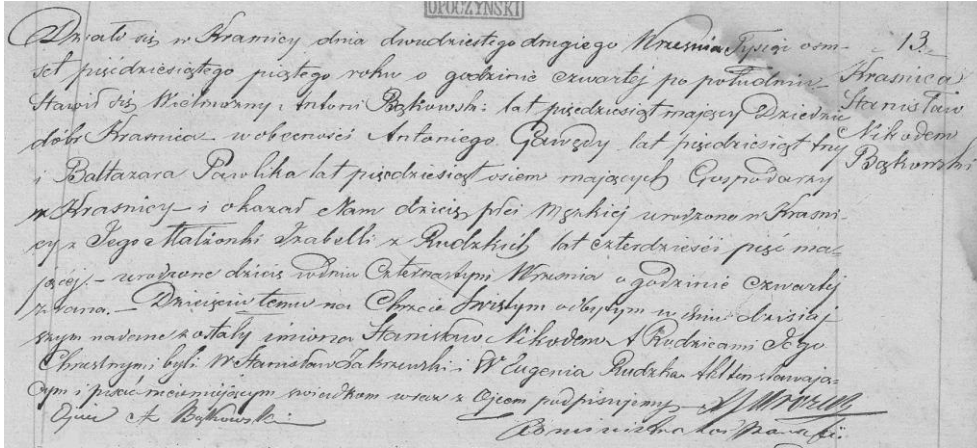 OPOCZYŃSKI
Działo się w Krasnicy dnia dwudziestego drugiego Wrzesnia Tysiąc osm-
set pięćdziesiątego piątego roku o godzinie czwartej po południu
Stawił się Wielmożny Antoni Bąkowski lat pięćdziesiąt mający Dziedzic
dóbr Krasnica w obecności Antoniego Gawędy lat pięćdziesiąt trzy
i Baltazara Pawlika lat pięćdziesiąt osiem mających Gospodarzy
w Krasnicy i okazał Nam dziecię płci Męzkiej urodzone w Krasni-
cy z Jego Małżonki Izabelli z Rudzkich lat czterdzieści pięć ma-
jącej.- urodzone dziecię w dniu Czternastym Wrzesnia o godzinie czwartej
z rana.- Dziecięciu temu na Chrzcie Świętym odbytym w dniu dzisiej
szym nadane zostały imiona Stanisław Nikodem A Rodzicami Jego
Chrzestnymi byli W Stanisław Zakrzewski i W Eugenia Rudzka Akt ten stawają-
cym i pisać nieumiejącym swiadkom wraz z Ojcem podpisujemy
Ojciec A Bąkowski
13.
Krasnica
Stanisław
Nikodem
Bąkowski